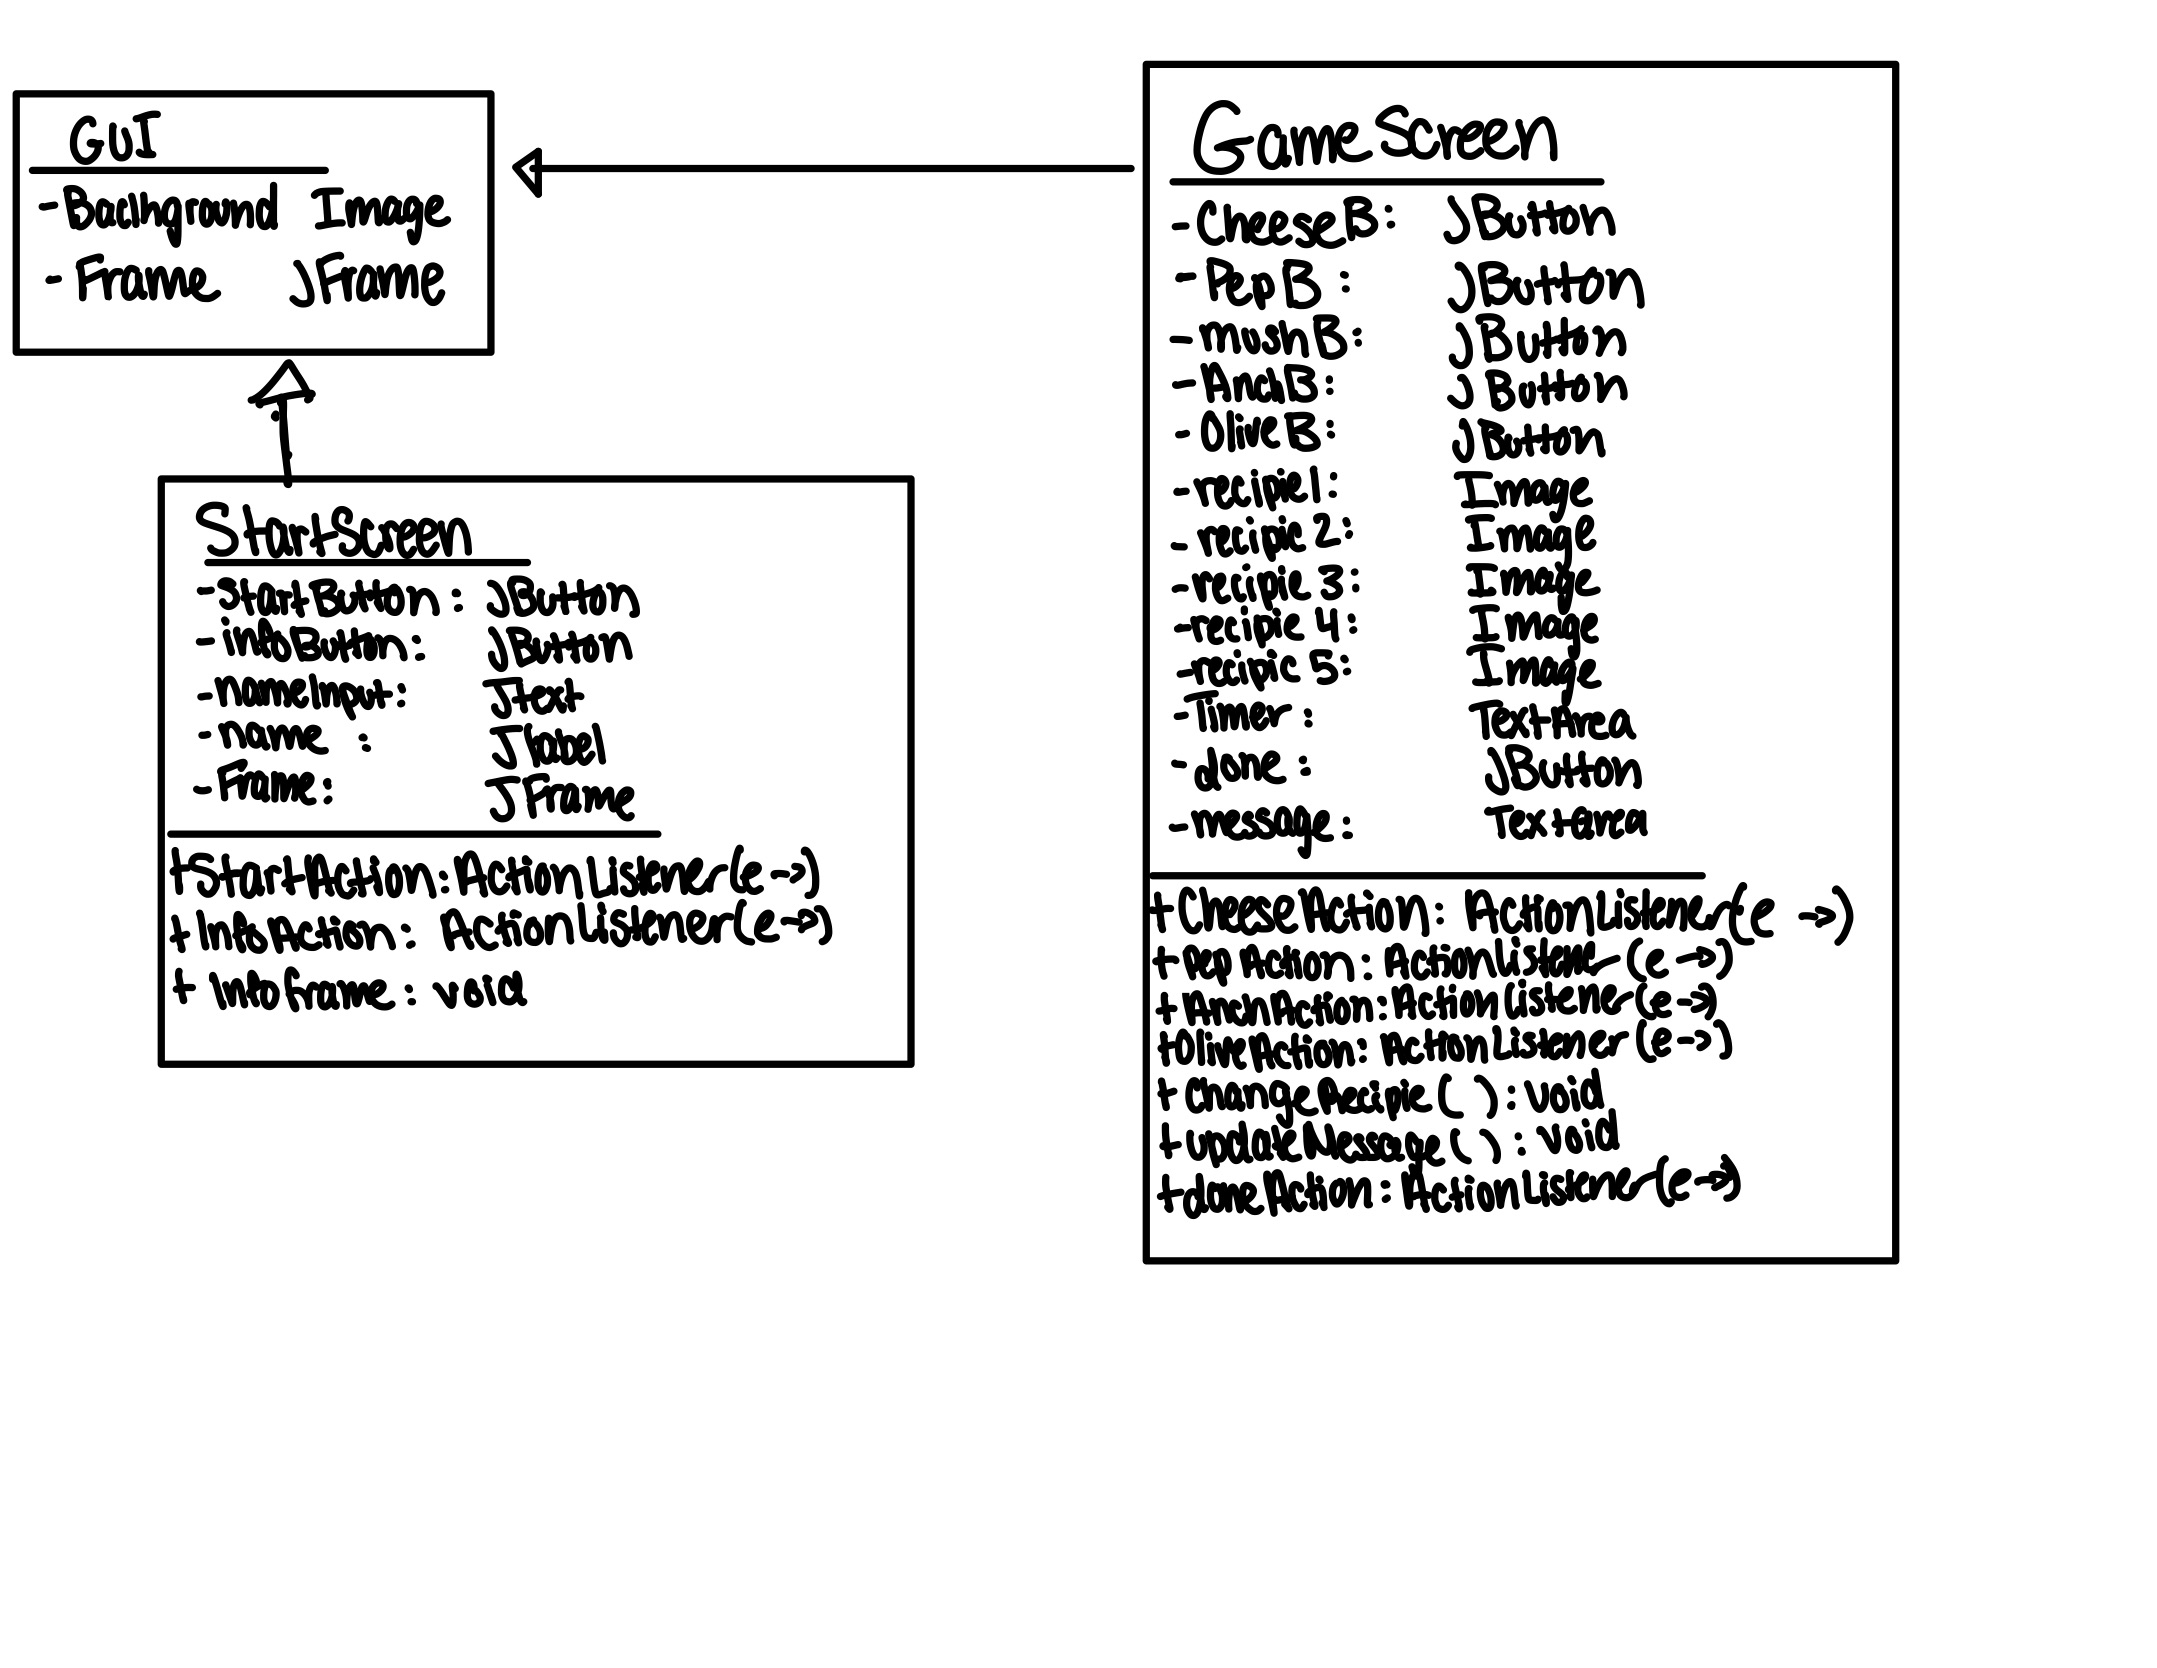 GUI
- Background Image
- Frame JFrame
StartScreen
- StartButton : JButton
- infoButton : JButton
- nameInput : Jtext
- name : Jlabel
- Frame : JFrame
+ StartAction : ActionListener (e ->)
+ InfoAction : ActionListener (e ->)
+ infoframe : void
GameScreen
- CheeseB : JButton
- PepB : JButton
- mushB : JButton
- AnchB : JButton
- OliveB : JButton
- recipie1 : Image
- recipie 2 : Image
- recipie 3 : Image
- recipie 4 : Image
- recipie 5 : Image
- Timer : TextArea
- done : JButton
- message : Textarea
+ CheeseAction : ActionListener (e ->)
+ PepAction : ActionListener (e ->)
+ AnchAction : ActionListener (e ->)
+ OliveAction : ActionListener (e ->)
+ ChangeRecipie ( ) : void
+ updateMessage ( ) : void
+ doneAction : ActionListener (e ->)